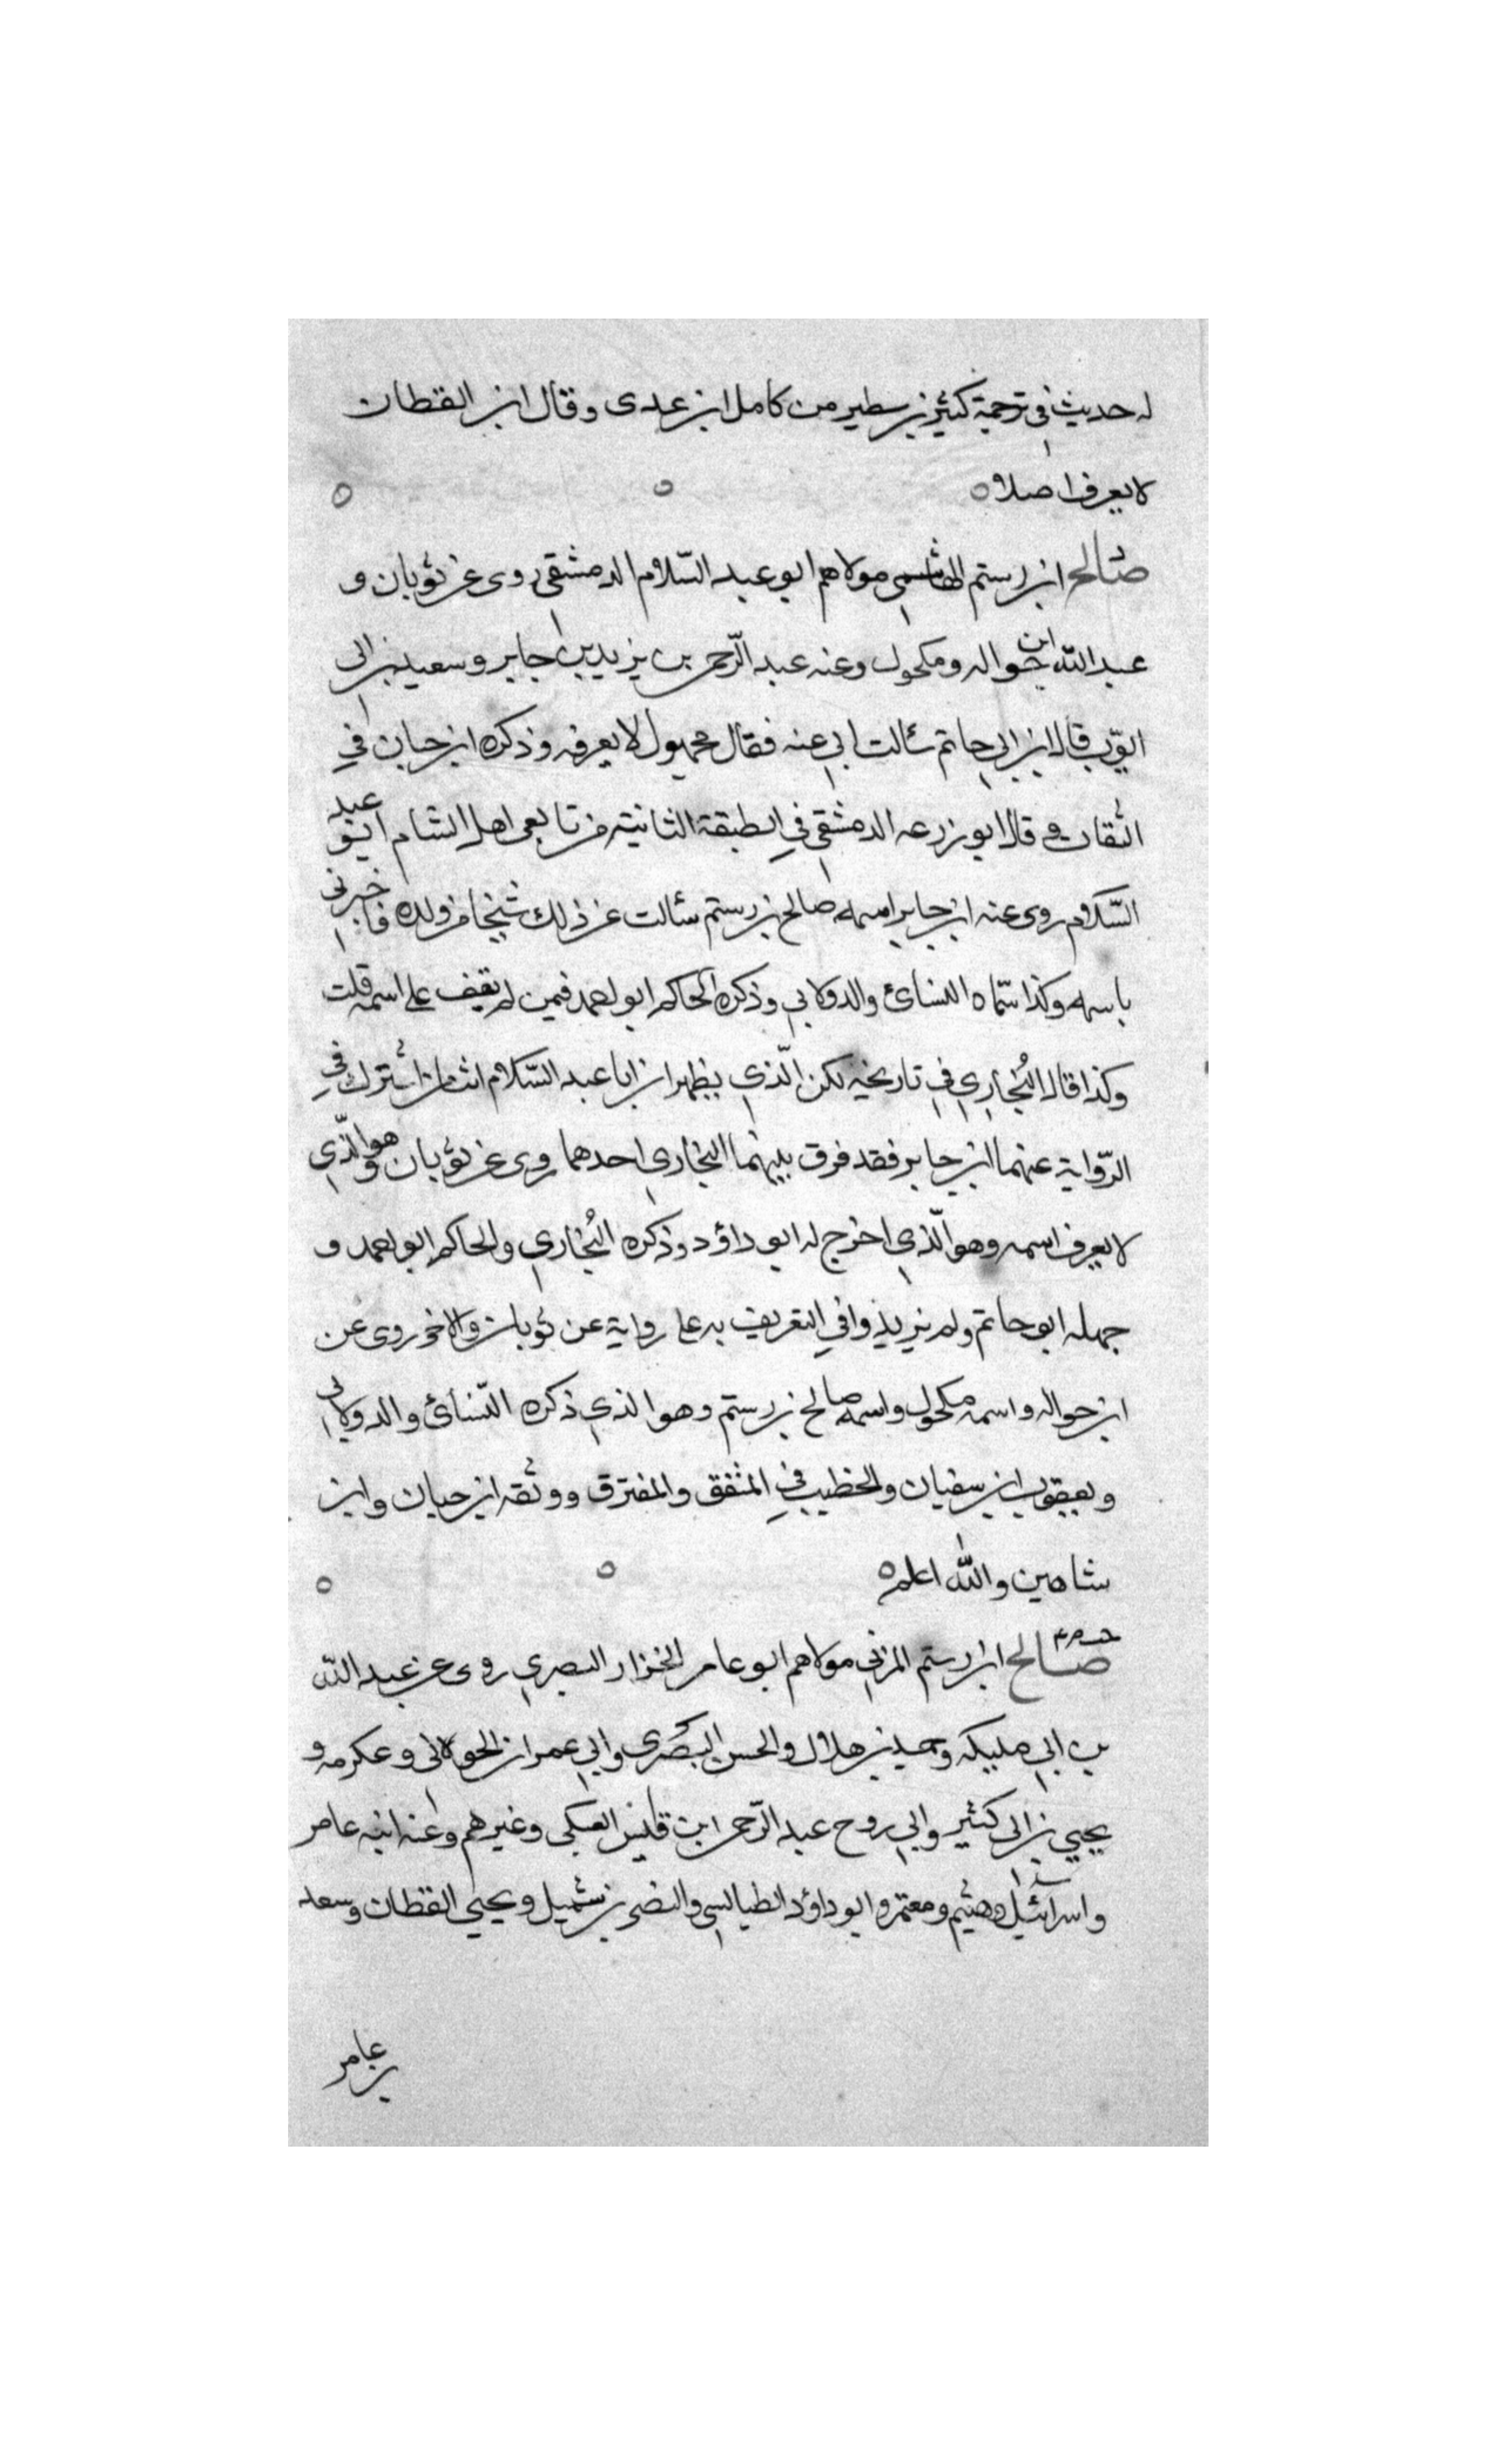 له حديث في ترجمة كثير بن سطير من كامل ابن عدى وقال ابن القطان
لا يعرف اصلا
صالح ابن رستم الهاشمي مولاهم ابو عبد السّلام الدمشقي روى عن ثوبان و
عبد الله ابن حواله ومكحول وعنه عبد الرّحمن بن يزيد بن جابر وسعيد بن ابى
ايوّب قال ابن ابي حاتم سئالت ابي عنه فقال مجهول لا يعرفه وذكره ابن حبان في
الثقات وقال ابو زرعه الدمشقي في الطبقة الثانية من تابعى اهل الشام ابو عبد
السّلام روى عنه ابن جابر اسمه صالح بن رستم سئالت عن ذلك شيخا من ولده فاخبرنى
باسمه وكذا سمّاه النسائ والدولابي وذكره الحاكم ابو احمد فيمن لم يقف على اسمه قلت
وكذا قال البُخاري في تاريخيه لكن الّذي يظهر ان ابا عبد السّلام اثنان اشترك في
الرّواية عنهما ابن جابر فقد فرق بينهما البخاري احدهما روى عن ثوبان وهو الّذي
لا يعرف اسمه وهو الّذي اخرج له ابو داؤد وذكره البُخاري والحاكم ابو احمد و
جهله ابو حاتم ولم يزيدوا في التعريف به على رواية عن ثوبان والاخر روى عن
ابن حواله واسمه مكحول واسمه صالح بن رستم وهو الذي ذكره النّسائ والدولابى
ويعقوب ابن سفيان والخطيب في المتفق والمفترق ووثقه ابن حبان وابن
شاهين والله اعلم
صالح ابن رستم المزني مولاهم ابو عامر الخزار البصري روى عن عبد الله
بن ابي مليكه وحميد بن هلال والحسن البصرى وابي عمران الجولانى وعكرمه و
يحيي بن ابى كثير وابي روح عبد الرّحمن ابن قيس العتكى وغيرهم وعنه ابنه عامر
واسرائيل وهشيم ومعتمر وابو داؤد الطيالسي والنضر بن شميل ويحيي القطان وسعد
بن عامر